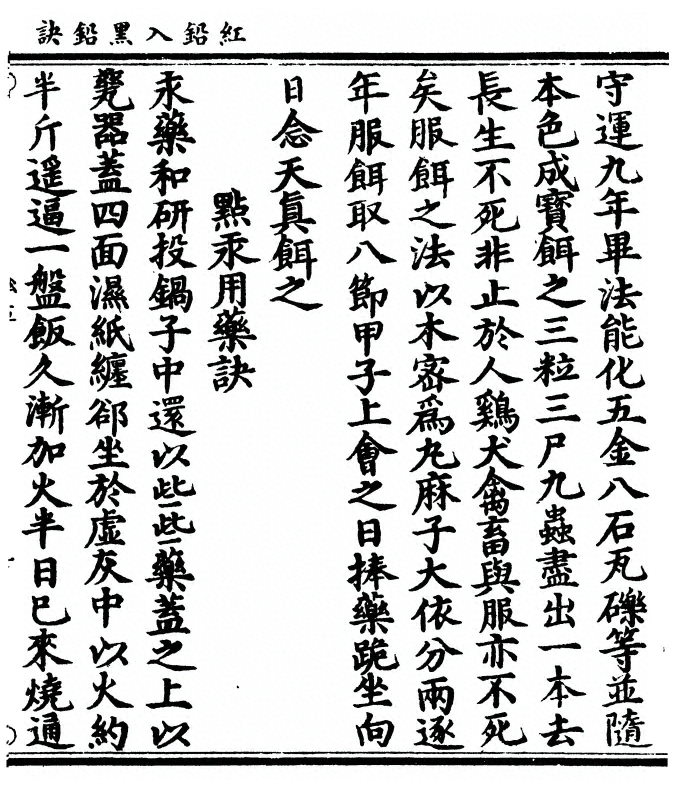 紅鉛入黑鉛訣
守運九年畢法能化五金八石瓦礫等並隨
本色成寶餌之三粒三尸九蟲盡出一本去
長生不死非止於人鷄犬禽畜與服亦不死
矣服餌之法以木宻為丸麻子大依分兩逐
年服餌取八節甲子上會之日捧藥跪坐向
日念天真餌之
點汞用藥訣
汞藥和研投鍋子中還以此此藥蓋之上以
甆器蓋四面濕紙纏郤坐於虛灰中以火約
半斤遥逼一盤飯久漸加火半日已來燒通